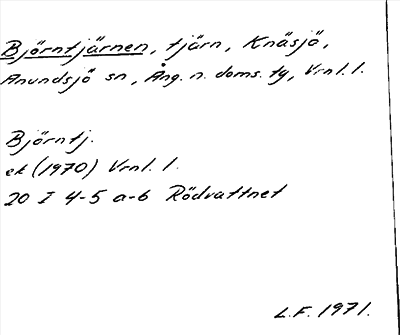 Björntjärnen, tjärn, Knäsjö,
Anundsjö sn, Ång. n. doms. tg, Vrnl. l.
Björntj.
ek (1970) Vrnl. l.
20 I 4-5 a-b Rödvattnet
L.F. 1971.